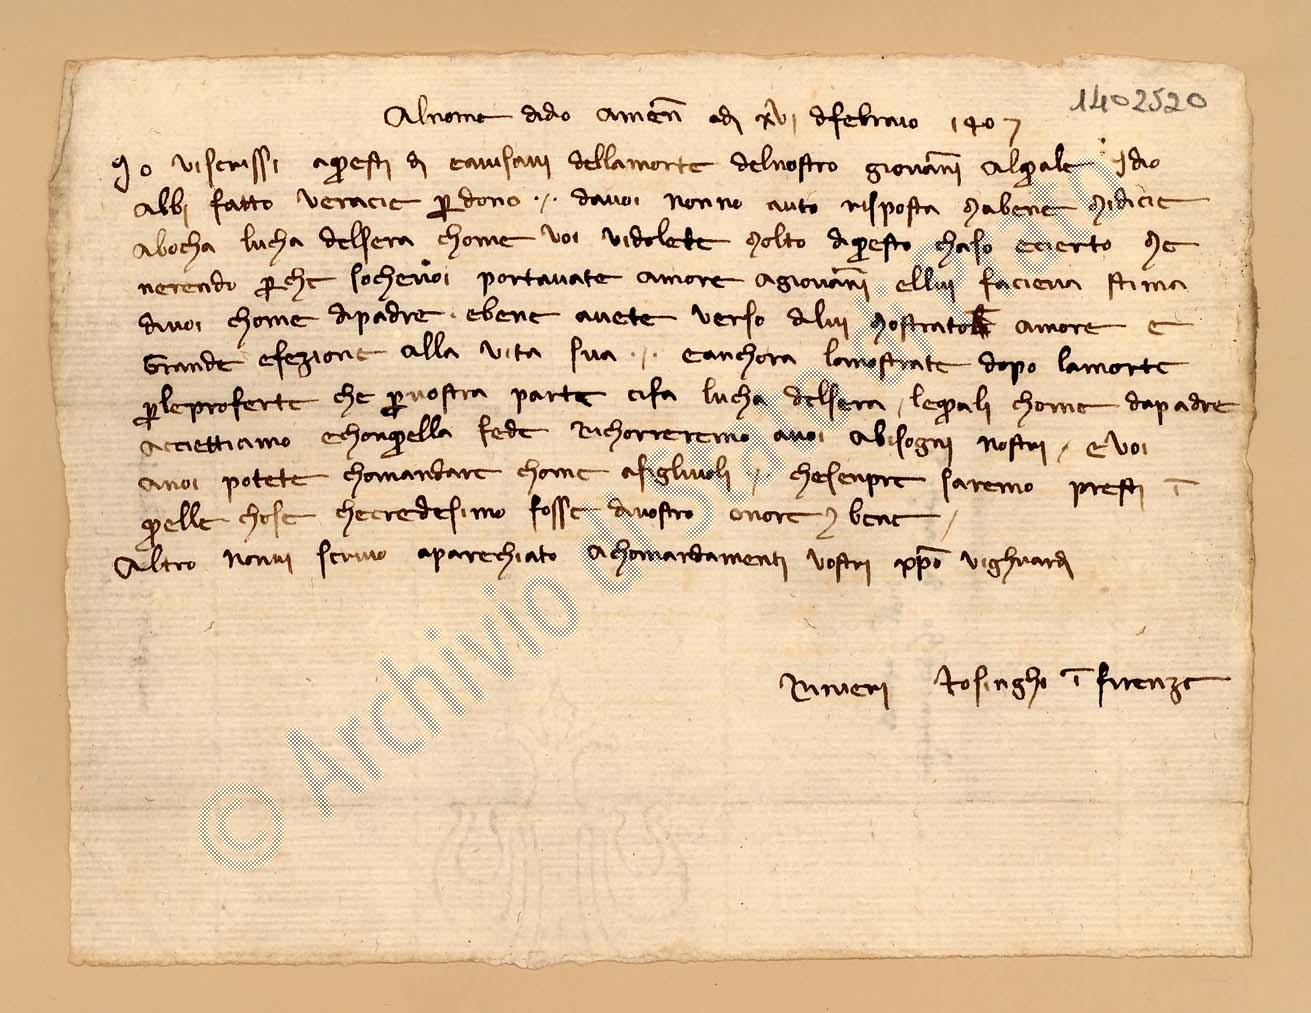 1402520
Al nome di dio amenn adi xvi di febraio 1407
Io vi scrissi a questi di e avisavi della morte del nostro giovanni al quale Idio
abbi fatto veracie perdono .,. da voi non n'o auto risposta Ma bene Mi dicie
a bocha lucha del sera chome voi vi dolete Molto di questo chaso e cierto Me
ne rendo perche so che voi portavate amore a giovanni e llui facieva stima
di voi chome di padre . e bene avete verso di lui Mostrato amore e
Grande efezione alla vita sua .,. e anchora la mostrate dopo la morte
per le proferte che per vostra parte ci fa lucha del sera / le quali chome da padre
acciettiamo e chon quella fede Richorreremo a voi a bisogni nostri / e voi
a noi potete chomandare chome a figliuoli .,. che senpre saremo presti i
quelle chose che credesimo fosse di vostro onore e bene /
Altro non vi scrivo aparechiato a chomandamenti vostri xpo vi ghuardi
Rinieri Rosinghi i firenze
© Archivio di Stato di Prato